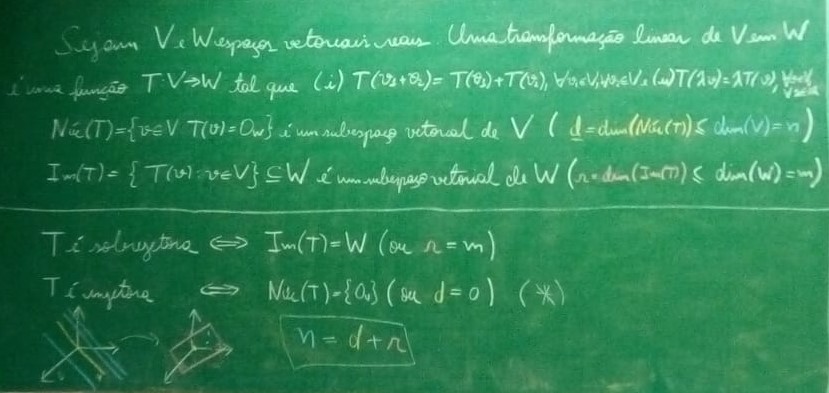 Sejam V e W espaços vetoriais reais. Uma transformação linear de V em W
é uma função T:V→W tal que (i) T(v₁+v₂)= T(v₁)+T(v₂), ∀v₁∈V, ∀v₂∈V e (ii) T(λv)=λT(v), ∀v∈V, ∀λ∈ℝ
Núc(T)={v∈V T(v)=0w} é um subespaço vetorial de V (d=dim(Núc(T)) ≤ dim(V)=n)
Im(T)={T(v):v∈V}⊆W é um subespaço vetorial de W (r=dim(Im(T)) ≤ dim(W)=m)
T é sobrejetora ⇔ Im(T)=W (ou r=m)
T é injetora ⇔ Núc(T)={0v} (ou d=0) (*)
n=d+r